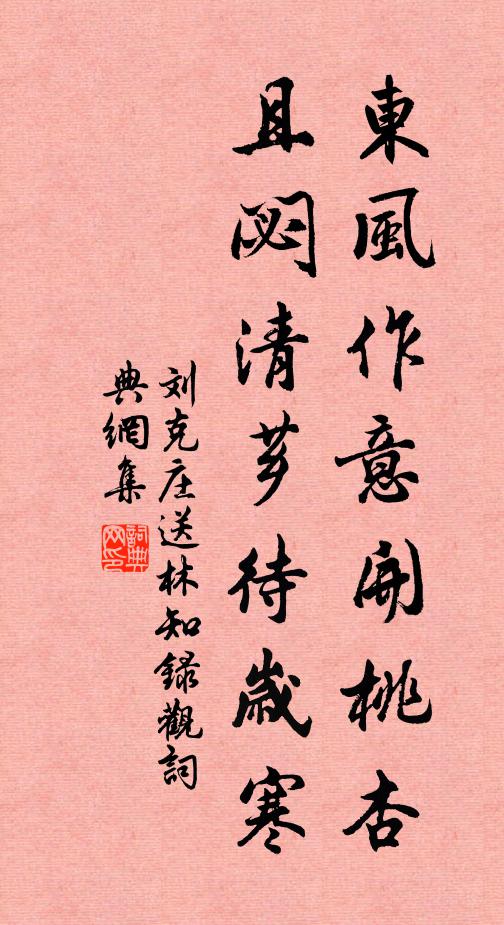 東風作意開桃杏
且閟清芗待歲寒
刘克庄送林知録觀詞
典網集
詞典
网印